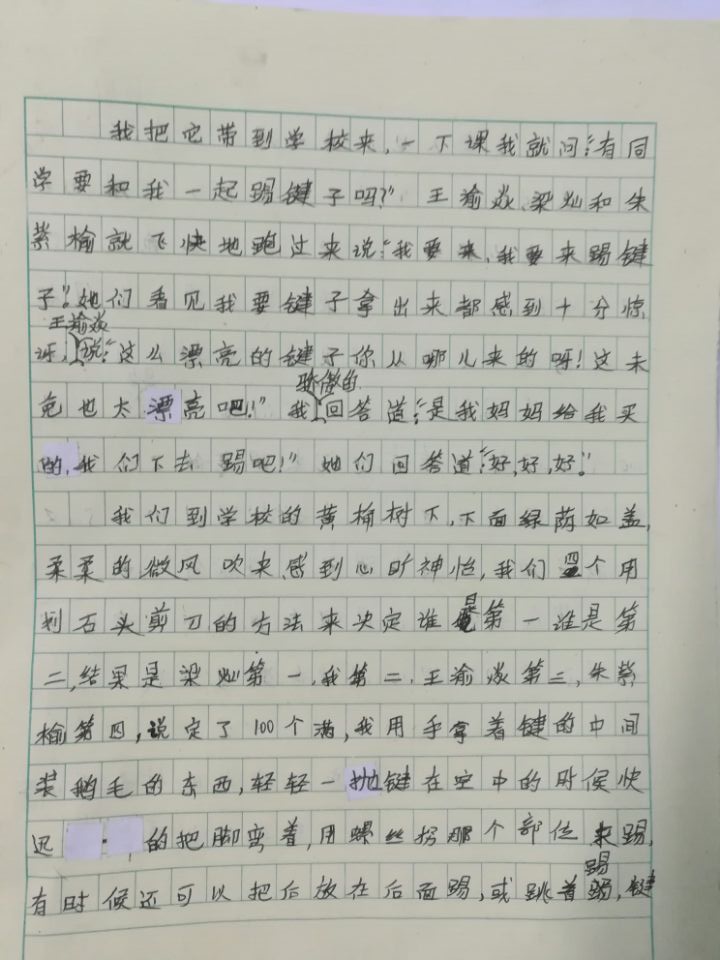 我把它带到学校来，一下课我就问：“有同
学要和我一起踢键子吗？”王瑜焱、梁灿和朱
紫榆就飞快地跑过来说：“我要来，我要来踢键
子”。她们看见我要键子拿出来都感到十分惊
讶，王瑜焱说：“这么漂亮的键子你从哪儿来的呀！这未
免也太漂亮吧！”我骄傲的回答道：“是我妈妈给我买
的，我们下去踢吧！”她们回答道：“好，好，好”。
我们到学校的黄桷树下，下面绿荫如盖，
柔柔的微风吹来感到心旷神怡，我们四个用
划石头剪刀的方法来决定谁是第一谁是第
二，结果是梁灿第一，我第二，王瑜焱第三，朱紫
榆第四，说定了100个满，我用手拿着键的中间
装鹅毛的东西，轻轻一抛键在空中的时候快
迅的把脚弯着，用螺丝拐那个部位来踢，
有时候还可以把后放在后面踢，或跳着踢，键